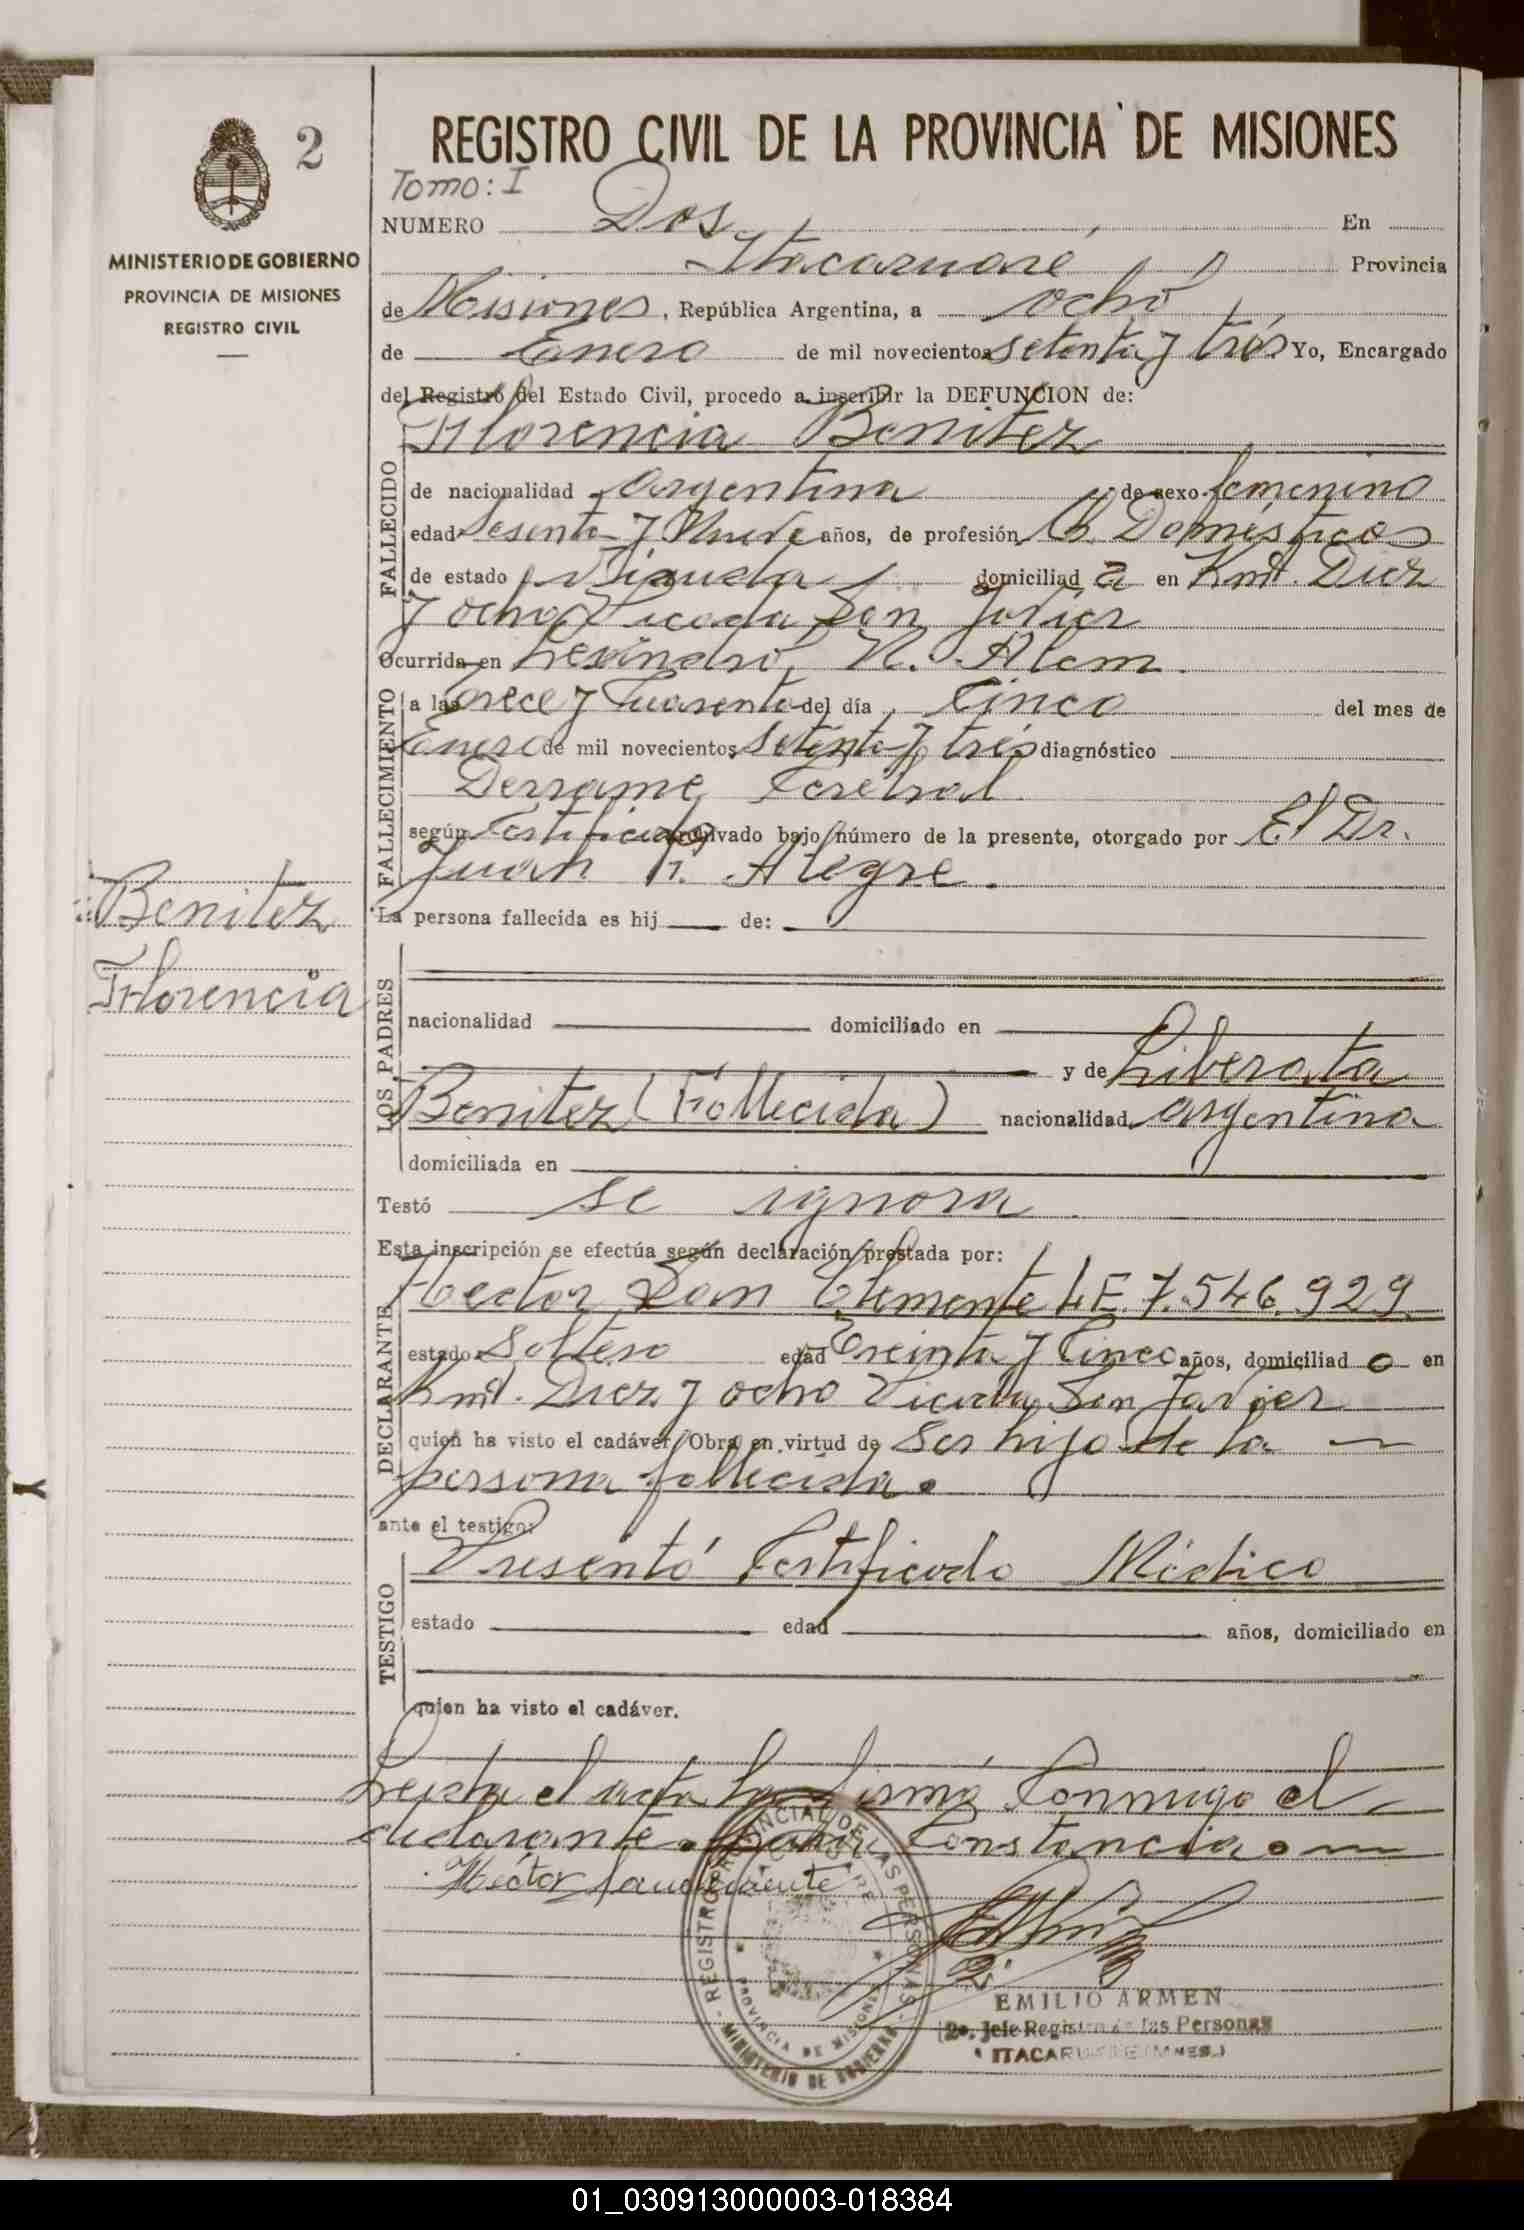 2
REGISTRO CIVIL DE LA PROVINCIA DE MISIONES
Tomo: I
NUMERO Dos En
Itacaruaré Provincia
MINISTERIO DE GOBIERNO
PROVINCIA DE MISIONES
REGISTRO CIVIL
de Misiones, República Argentina, a ocho
de Enero de mil novecientos setenta y tres Yo, Encargado
del Registro del Estado Civil, procedo a inscribir la DEFUNCION de:
Florencia Benitez
FALLECIDO
de nacionalidad argentina de sexo femenino
edad Sesenta y Nueve años, de profesión Q. Domésticos
de estado Viuda domiciliad a en Kmt. Diez
y ocho Picada San Javier
Ocurrida en Leandro N. Alem
FALLECIMIENTO
a las Trece y Cuarenta del día Cinco del mes de
Enero de mil novecientos setenta y tres diagnóstico
Derrame Cerebral
según Certificado archivado bajo número de la presente, otorgado por El Dr.
Juan R. Alegre.
Benitez
Florencia
La persona fallecida es hij de:
LOS PADRES
nacionalidad domiciliado en
y de Liberata
Benitez (Fallecida) nacionalidad argentina
domiciliada en
Testó se ignora
Esta inscripción se efectúa según declaración prestada por:
DECLARANTE
Hector San Clemente L.E. 7.546.929
estado Soltero edad Treinta y Cinco años, domiciliad o en
Kmt. Diez y ocho Picada San Javier
quien ha visto el cadáver. Obra en virtud de Ser hijo de la
persona fallecida.
ante el testigo:
TESTIGO
Presentó Certificado Médico
estado edad años, domiciliado en
quien ha visto el cadáver.
Leída el acta la firmó Conmigo el
declarante. Constancia.
Héctor Sanclemente
REGISTRO PROVINCIAL DE LAS PERSONAS
PROVINCIA DE MISIONES
MINISTERIO DE GOBIERNO
EMILIO ARMEN
2o. Jefe Registro de las Personas
ITACARUARE (MNES.)
01_030913000003-018384